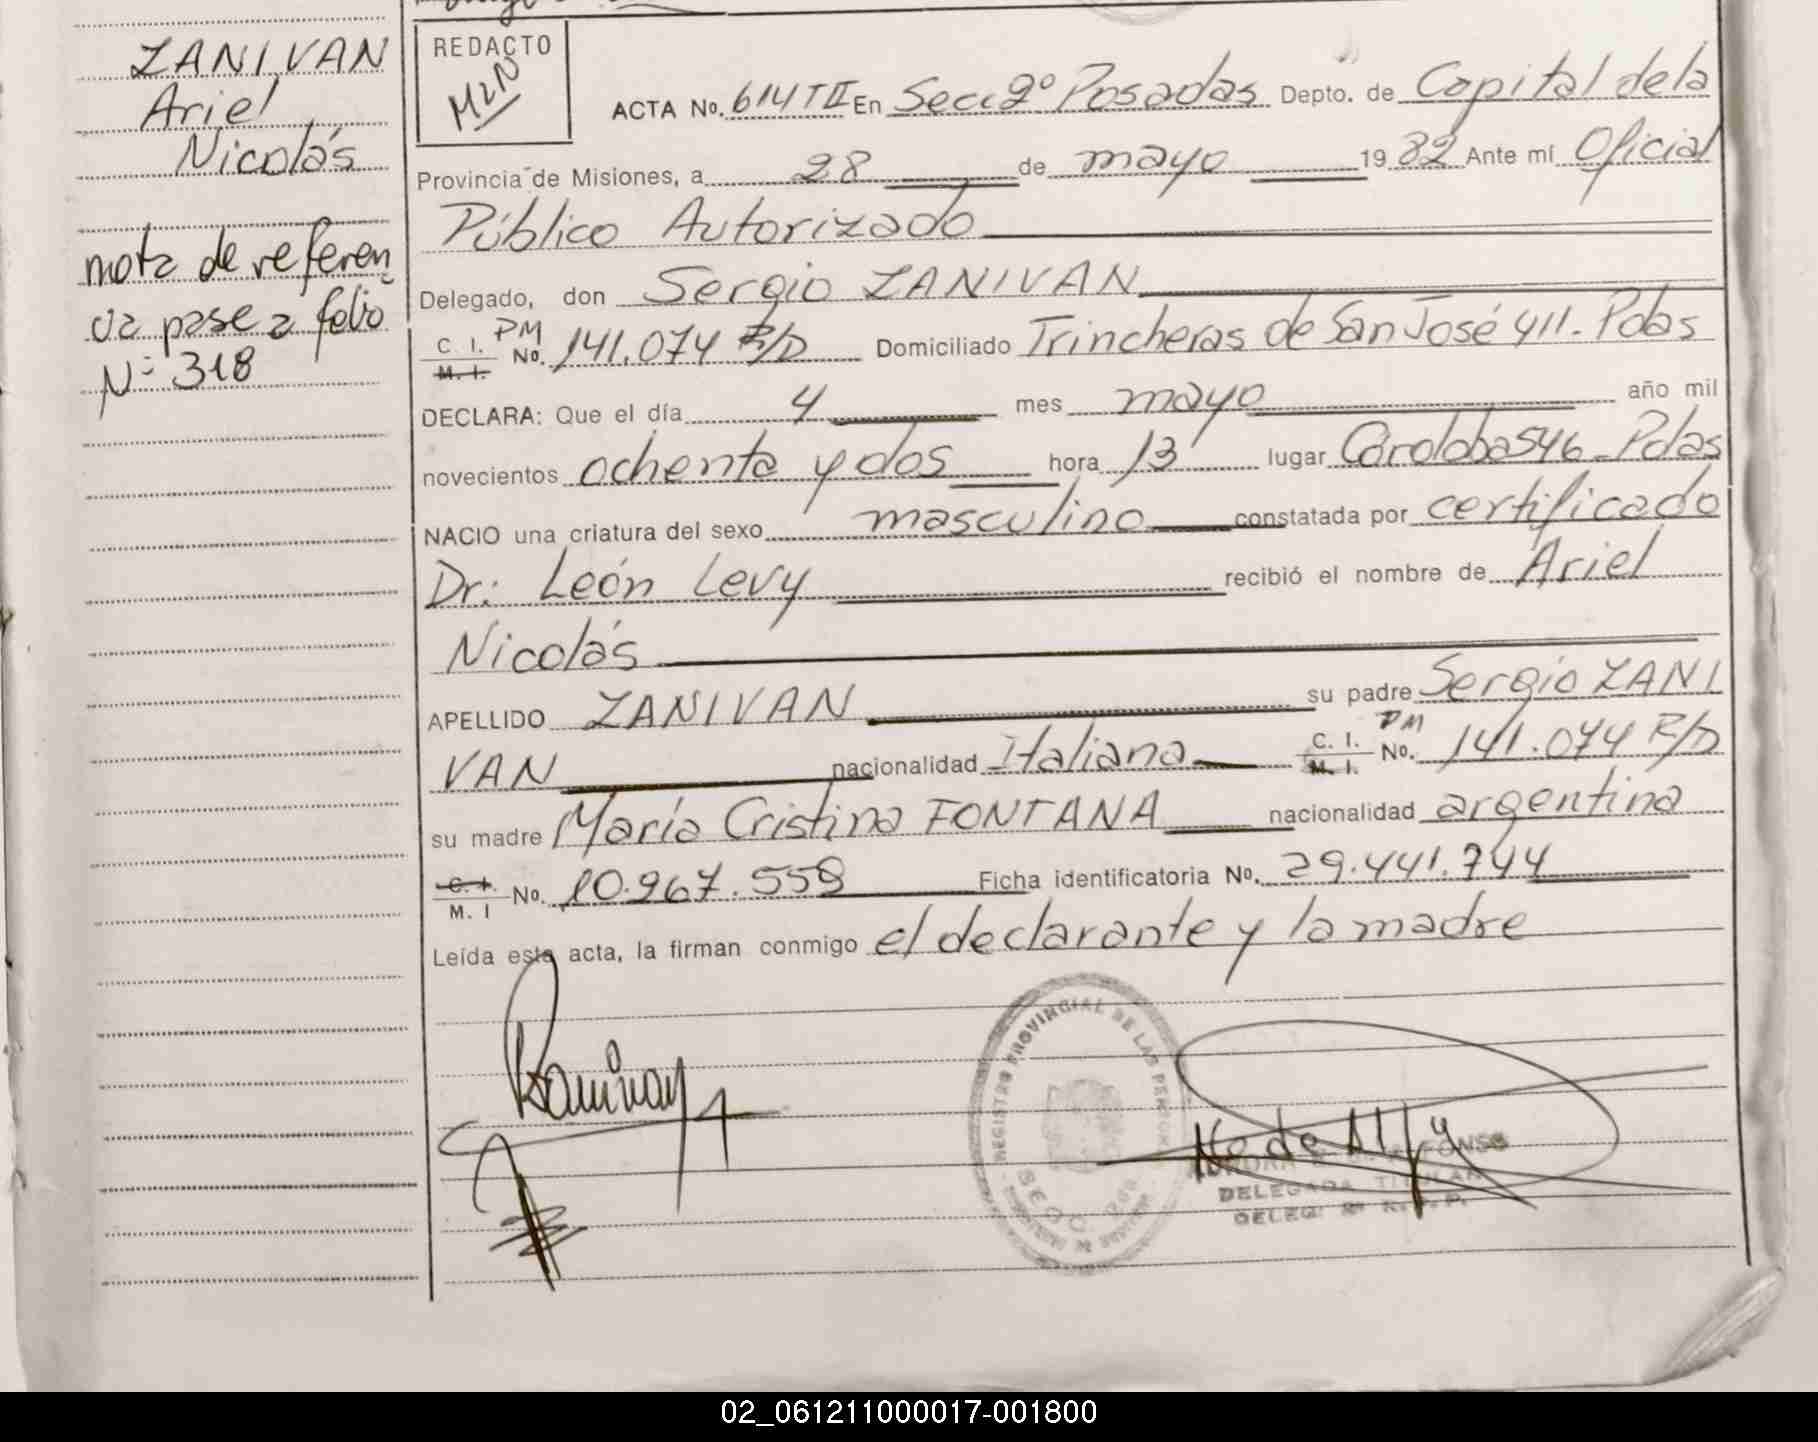 ZANIVAN
Ariel
Nicolás
nota de referen
cia pase a folio
Nº 318
REDACTO
MLN
ACTA No. 614 T II En Secc 2º Posadas Depto. de Capital de la
Provincia de Misiones, a 28 de mayo 1982 Ante mí Oficial
Público Autorizado
Delegado, don Sergio ZANIVAN
C. I. M. I. PM No. 141.074 R/D Domiciliado Trincheras de San José 411. Pdas
DECLARA: Que el día 4 mes mayo año mil
novecientos ochenta y dos hora 13 lugar Córdoba 546 - Pdas
NACIO una criatura del sexo masculino constatada por certificado
Dr: León Levy recibió el nombre de Ariel
Nicolás
APELLIDO ZANIVAN su padre Sergio ZANI
VAN nacionalidad Italiana C. I. M. I. PM No. 141.074 R/D
su madre María Cristina FONTANA nacionalidad argentina
C. I. M. I No. 10.967.558 Ficha identificatoria No. 29.441.744
Leída esta acta, la firman conmigo el declarante y la madre
REGISTRO PROVINCIAL DE LAS PERSONAS
SECC.
DELEGADA TITULAR
DELEG. 2ª R.P.P.
02_061211000017-001800